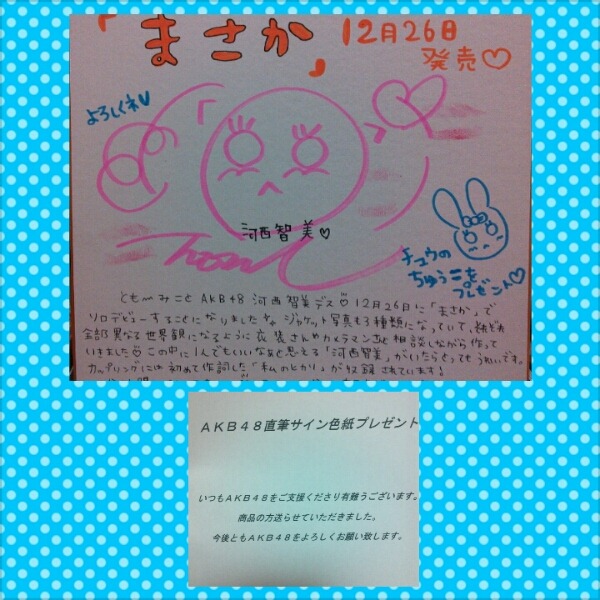 「まさか」
12月26日
発売♡
よろしくネ
河西智美♡
チュウの
ちゅうこを
プレゼント♡
とも〜みこと AKB48 河西智美デス♡ 12月26日に「まさか」で
ソロデビューすることになりました
ジャケット写真も3種類になっていて、それぞれ
全部異なる世界観になるように衣装さんやカメラマンさんと相談しながら作って
いきました♡ この中に1人でもいいなぁと思える「河西智美」がいたらとってもうれしいです。
カップリングには初めて作詞した「私のヒカリ」が収録されています!
AKB48直筆サイン色紙プレゼント
いつもAKB48をご支援くださり有難うございます。
商品の方送らせていただきました。
今後ともAKB48をよろしくお願い致します。